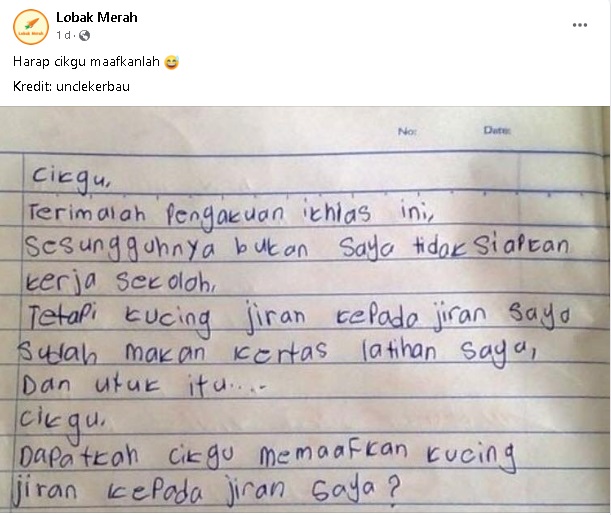 Lobak Merah
Lobak Merah
1 d ·
Harap cikgu maafkanlah 😅
Kredit: unclekerbau
No: Date:
Cikgu,
Terimalah Pengakuan ikhlas ini,
Sesungguhnya bukan saya tidak siapkan
kerja sekolah,
Tetapi kucing jiran kepada jiran saya
Sudah makan kertas latihan saya,
Dan utuk itu....
Cikgu.
Dapatkah cikgu memaafkan kucing
jiran kepada jiran saya?